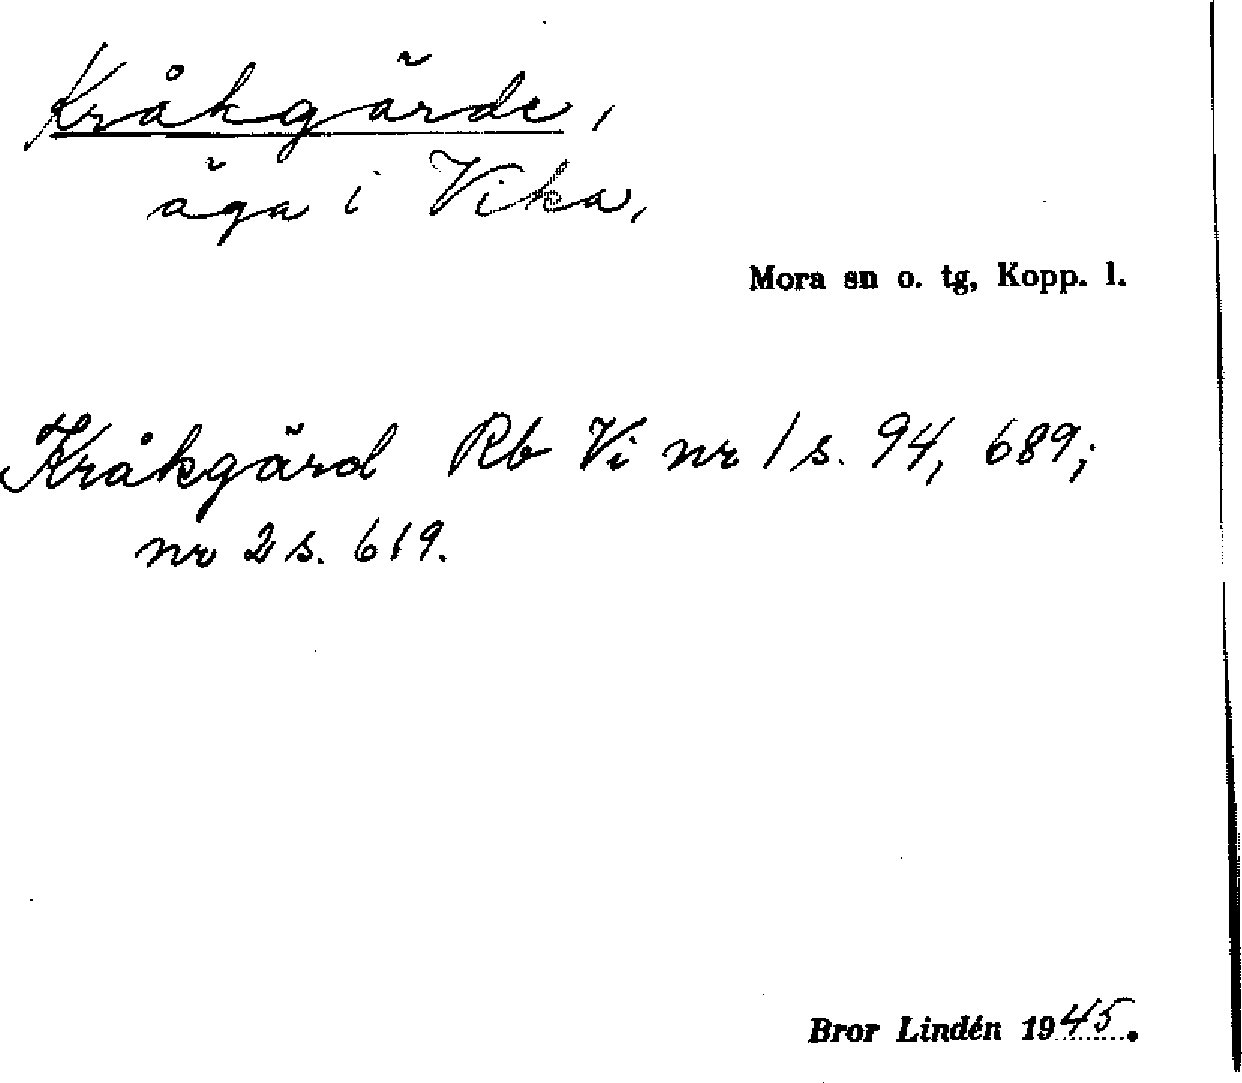 Kråkgärde,
äga i Vika,
Mora sn o. tg, Kopp. l.
Kråkgärd Rb Vi nr 1 s. 94, 689;
nr 2 s. 619.
Bror Lindén 1945.